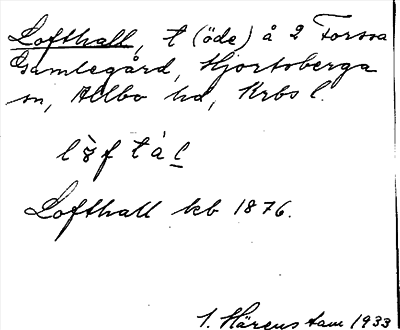 Lofthall, t (öde) å 2 Forssa
Gamlegård, Hjortsberga
sn, Allbo hd, Krbs l.
Lofthall kb 1876.
1. Härenstam 1933